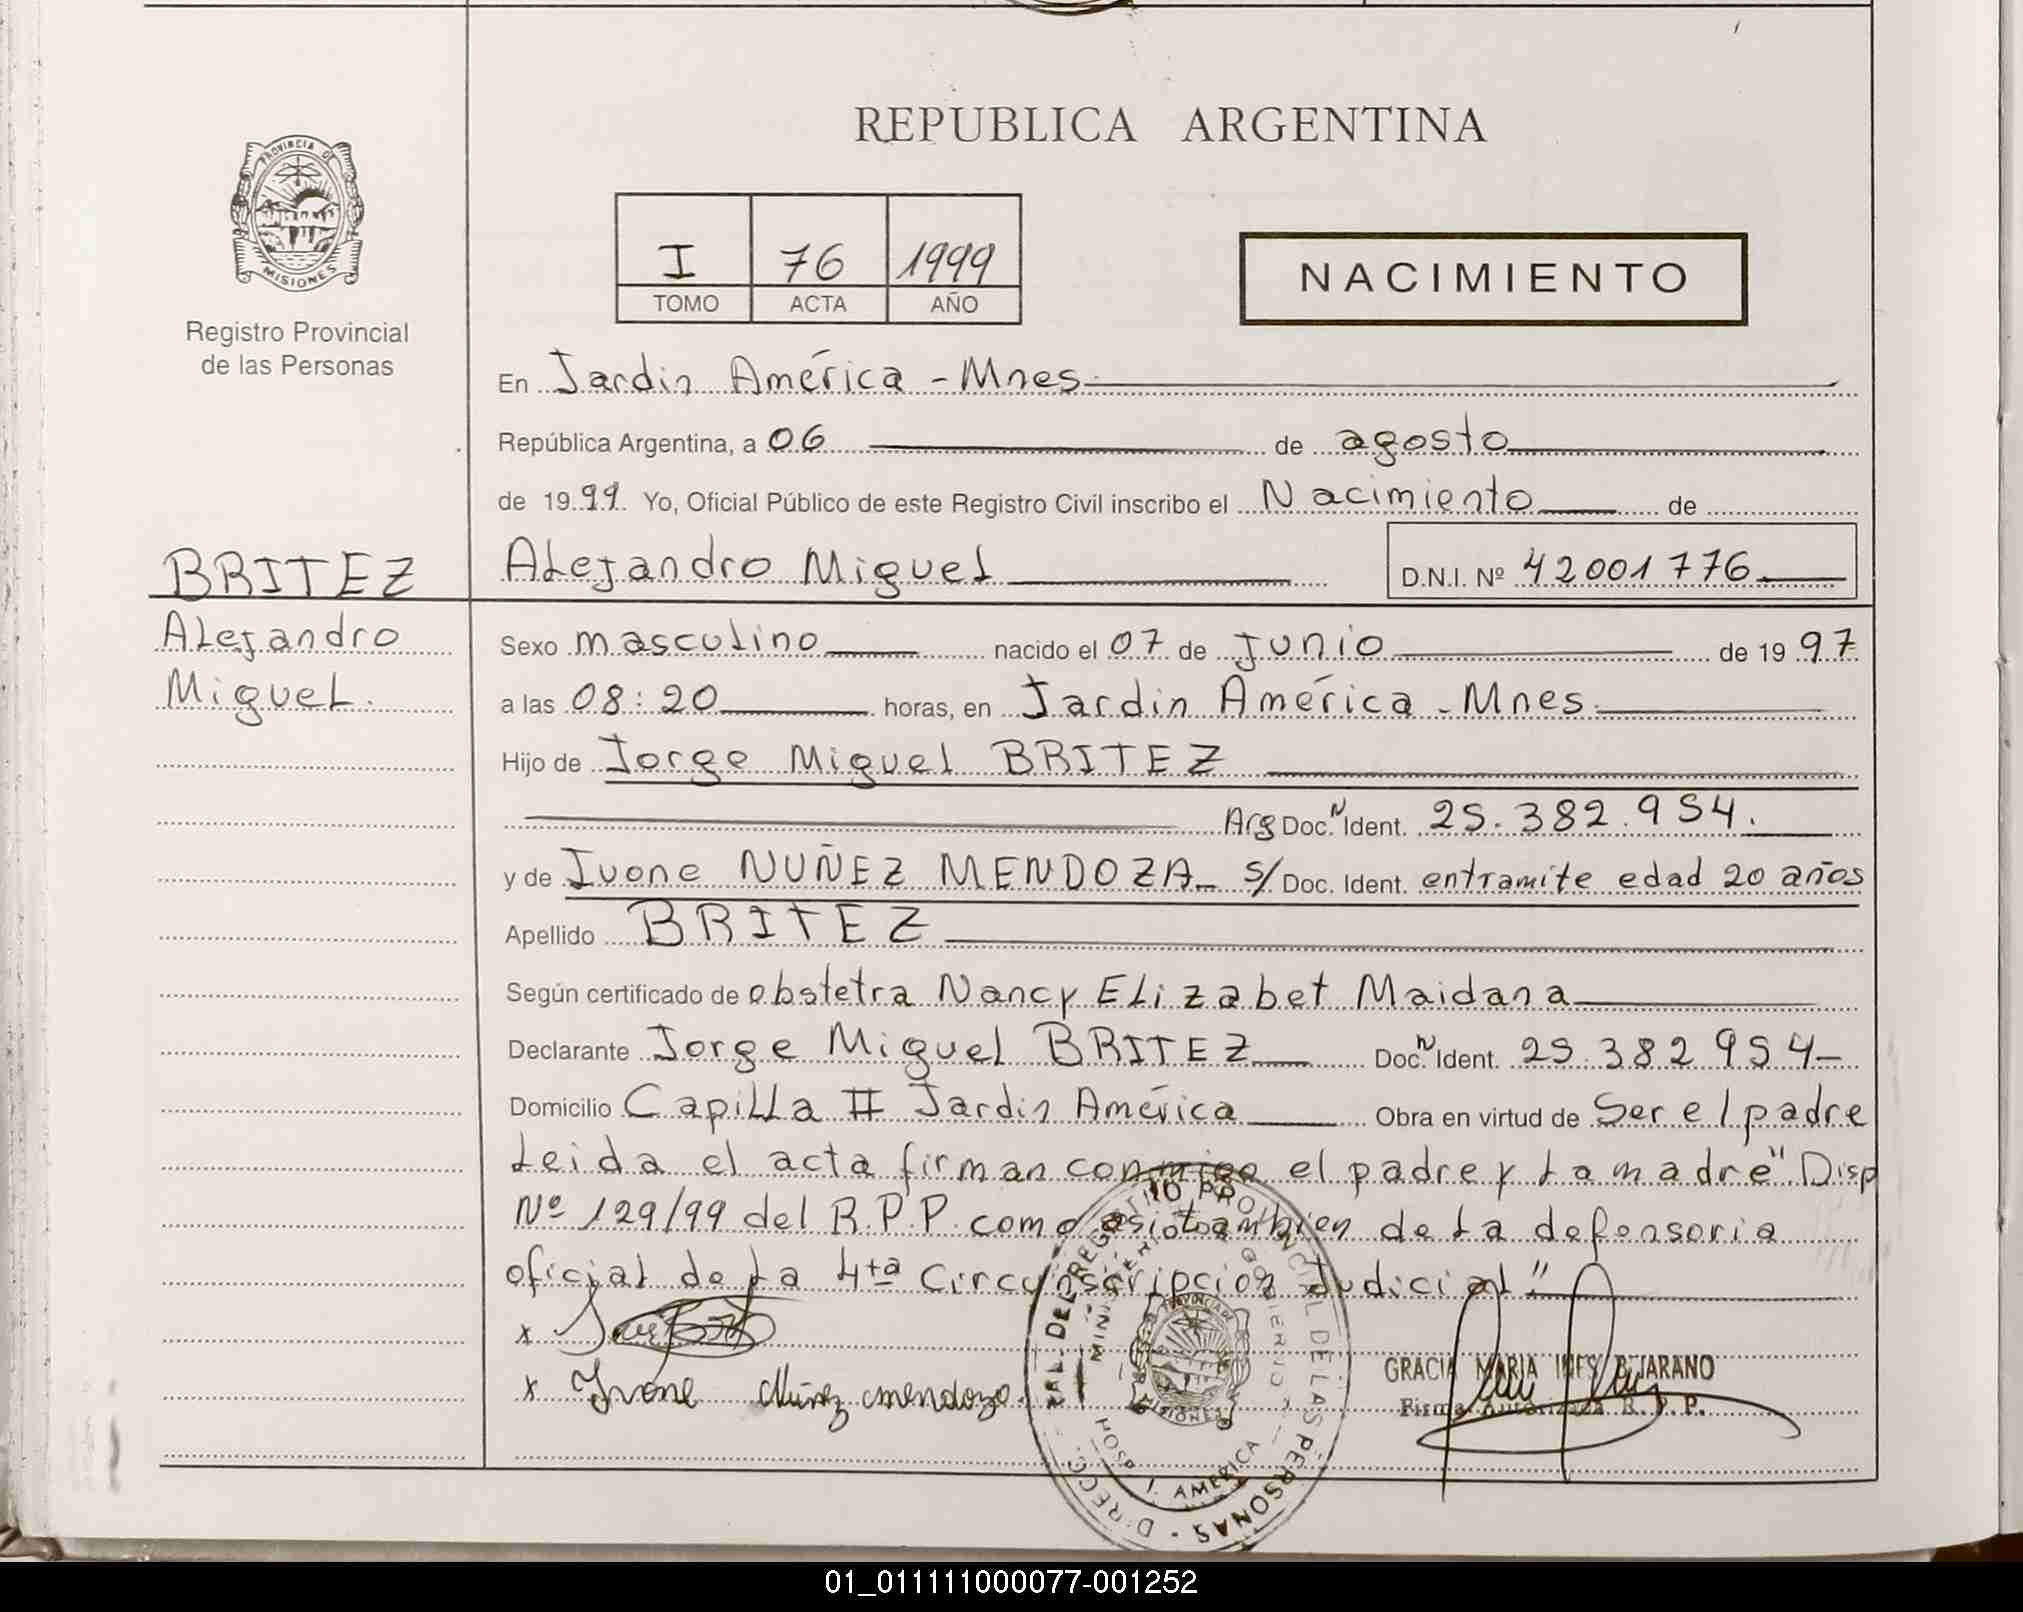 REPUBLICA ARGENTINA
PROVINCIA DE
MISIONES
Registro Provincial
de las Personas
I 76 1999
TOMO ACTA AÑO
NACIMIENTO
En Jardin América - Mnes.
República Argentina, a 06 de agosto
de 1999 Yo, Oficial Público de este Registro Civil inscribo el Nacimiento de
BRITEZ
Alejandro Miguel D.N.I. Nº 42001776
Alejandro
Miguel.
Sexo masculino nacido el 07 de junio de 1997
a las 08:20 horas, en Jardin América - Mnes.
Hijo de Jorge Miguel BRITEZ
Arg Doc. N Ident. 25.382.954.
y de Ivone NUÑEZ MENDOZA s/ Doc. Ident. entramite edad 20 años
Apellido BRITEZ
Según certificado de obstetra Nancy Elizabet Maidana
Declarante Jorge Miguel BRITEZ Doc. N Ident. 25.382.954
Domicilio Capilla II Jardin América Obra en virtud de Ser el padre
Leida el acta firman conmigo el padre y la madre " Disp
Nº 129/99 del R.P.P. como asi tambien de la defensoria
oficial de la 4ta Circunscripcion Judicial"
x
x Ivone Núñez mendoza
GRACIA MARIA INES BEJARANO
Firma Autorizada R. P. P.
DIRECC. GRAL. DEL REGISTRO PROVINCIAL DE LAS PERSONAS
MINISTERIO DE GOBIERNO
PROVINCIA DE
MISIONES
J. AMERICA
01_011111000077-001252